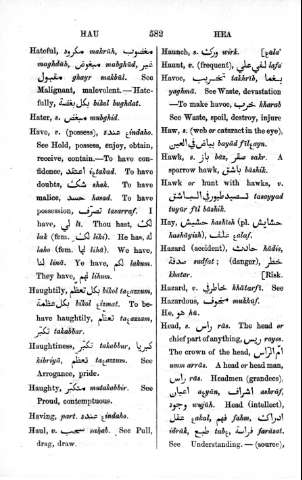 HAU 582 HEA
Hateful, مكروه makrūh, مغضوب
maghdūb, مبغوض mabghūd, غير
مقبول ghayr makbūl. See
Malignant, malevolent. — Hate-
fully, بكل بغضة bikol bughdat.
Hater, s. مبغض mubghid.
Have, v. (possess), عنده ɛindaho.
See Hold, possess, enjoy, obtain,
receive, contain.—To have con-
fidence, اعتقد iɛtakad. To have
doubts, شك shak. To have
malice, حسد hasad. To have
possession, تصرف tasarraf. I
have, لي lī. Thou hast, لك
lak (fem. لك liki). He has, له
laho (fem. لها lihā). We have,
لنا linā. Ye have, لكم lakum.
They have, لهم lihum.
Haughtily, بكل تعظم bikol taɛazzum,
بكل عظمة bikol ɛizmat. To be-
have haughtily, تعظم taɛazzum,
تكبر takabbur.
Haughtiness, تكبر takabbur, كبريا
kibriyā, تعظم taɛazzum. See
Arrogance, pride.
Haughty, متكبر mutakabbir. See
Proud, contemptuous.
Having, part. عنده ɛindaho.
Haul, v. سحب sahab. See Pull,
drag, draw.
Haunch, s. ورك wirk. [ɛala'
Haunt, v. (frequent), لفي علي lafa'
Havoc, تخريب takhrīb, يغما
yaghmā. See Waste, devastation
—To make havoc, خرب kharab
See Waste, spoil, destroy, injure
Haw, s. (web or cataract in the eye),
بياض في العين bayād fīlɛayn.
Hawk, s. باز bāz, صقر sakr. A
sparrow hawk, باشق bāshik.
Hawk or hunt with hawks, v.
تصيد طيور في الباشق tasayyad
tuyūr fīl bāshik.
Hay, حشيش hashīsh (pl. حشايش
hashāyish), علف ɛalaf.
Hazard (accident), حادث hādis,
صدفة sudfat; (danger), خطر
khatar. [Risk.
Hazard, v. خاطر khātar. See
Hazardous, مخوف mukhūf.
He, هو hū.
Head, s. راس rās. The head or
chief part of anything, ريس rayes.
The crown of the head, ام الراس
umm arrās. A head or head man,
راس rās. Headmen (grandees),
اعيان aɛyān, اشراف ashrāf,
وجوه wujūh. Head (intellect),
عقل ɛakal, فهم fahm, ادراك
idrāk, طبع tubɛ, فراسة farāsat.
See Understanding. — (source),